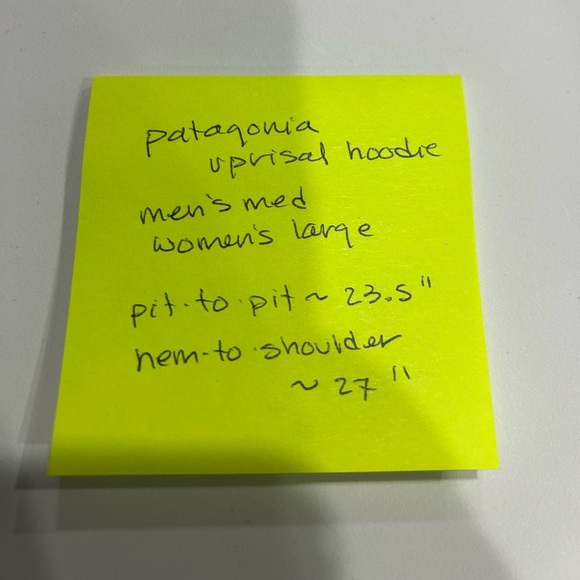 patagonia
uprisal hoodie
men's med
women's large
pit-to-pit ~ 23.5"
hem-to-shoulder
~ 27"